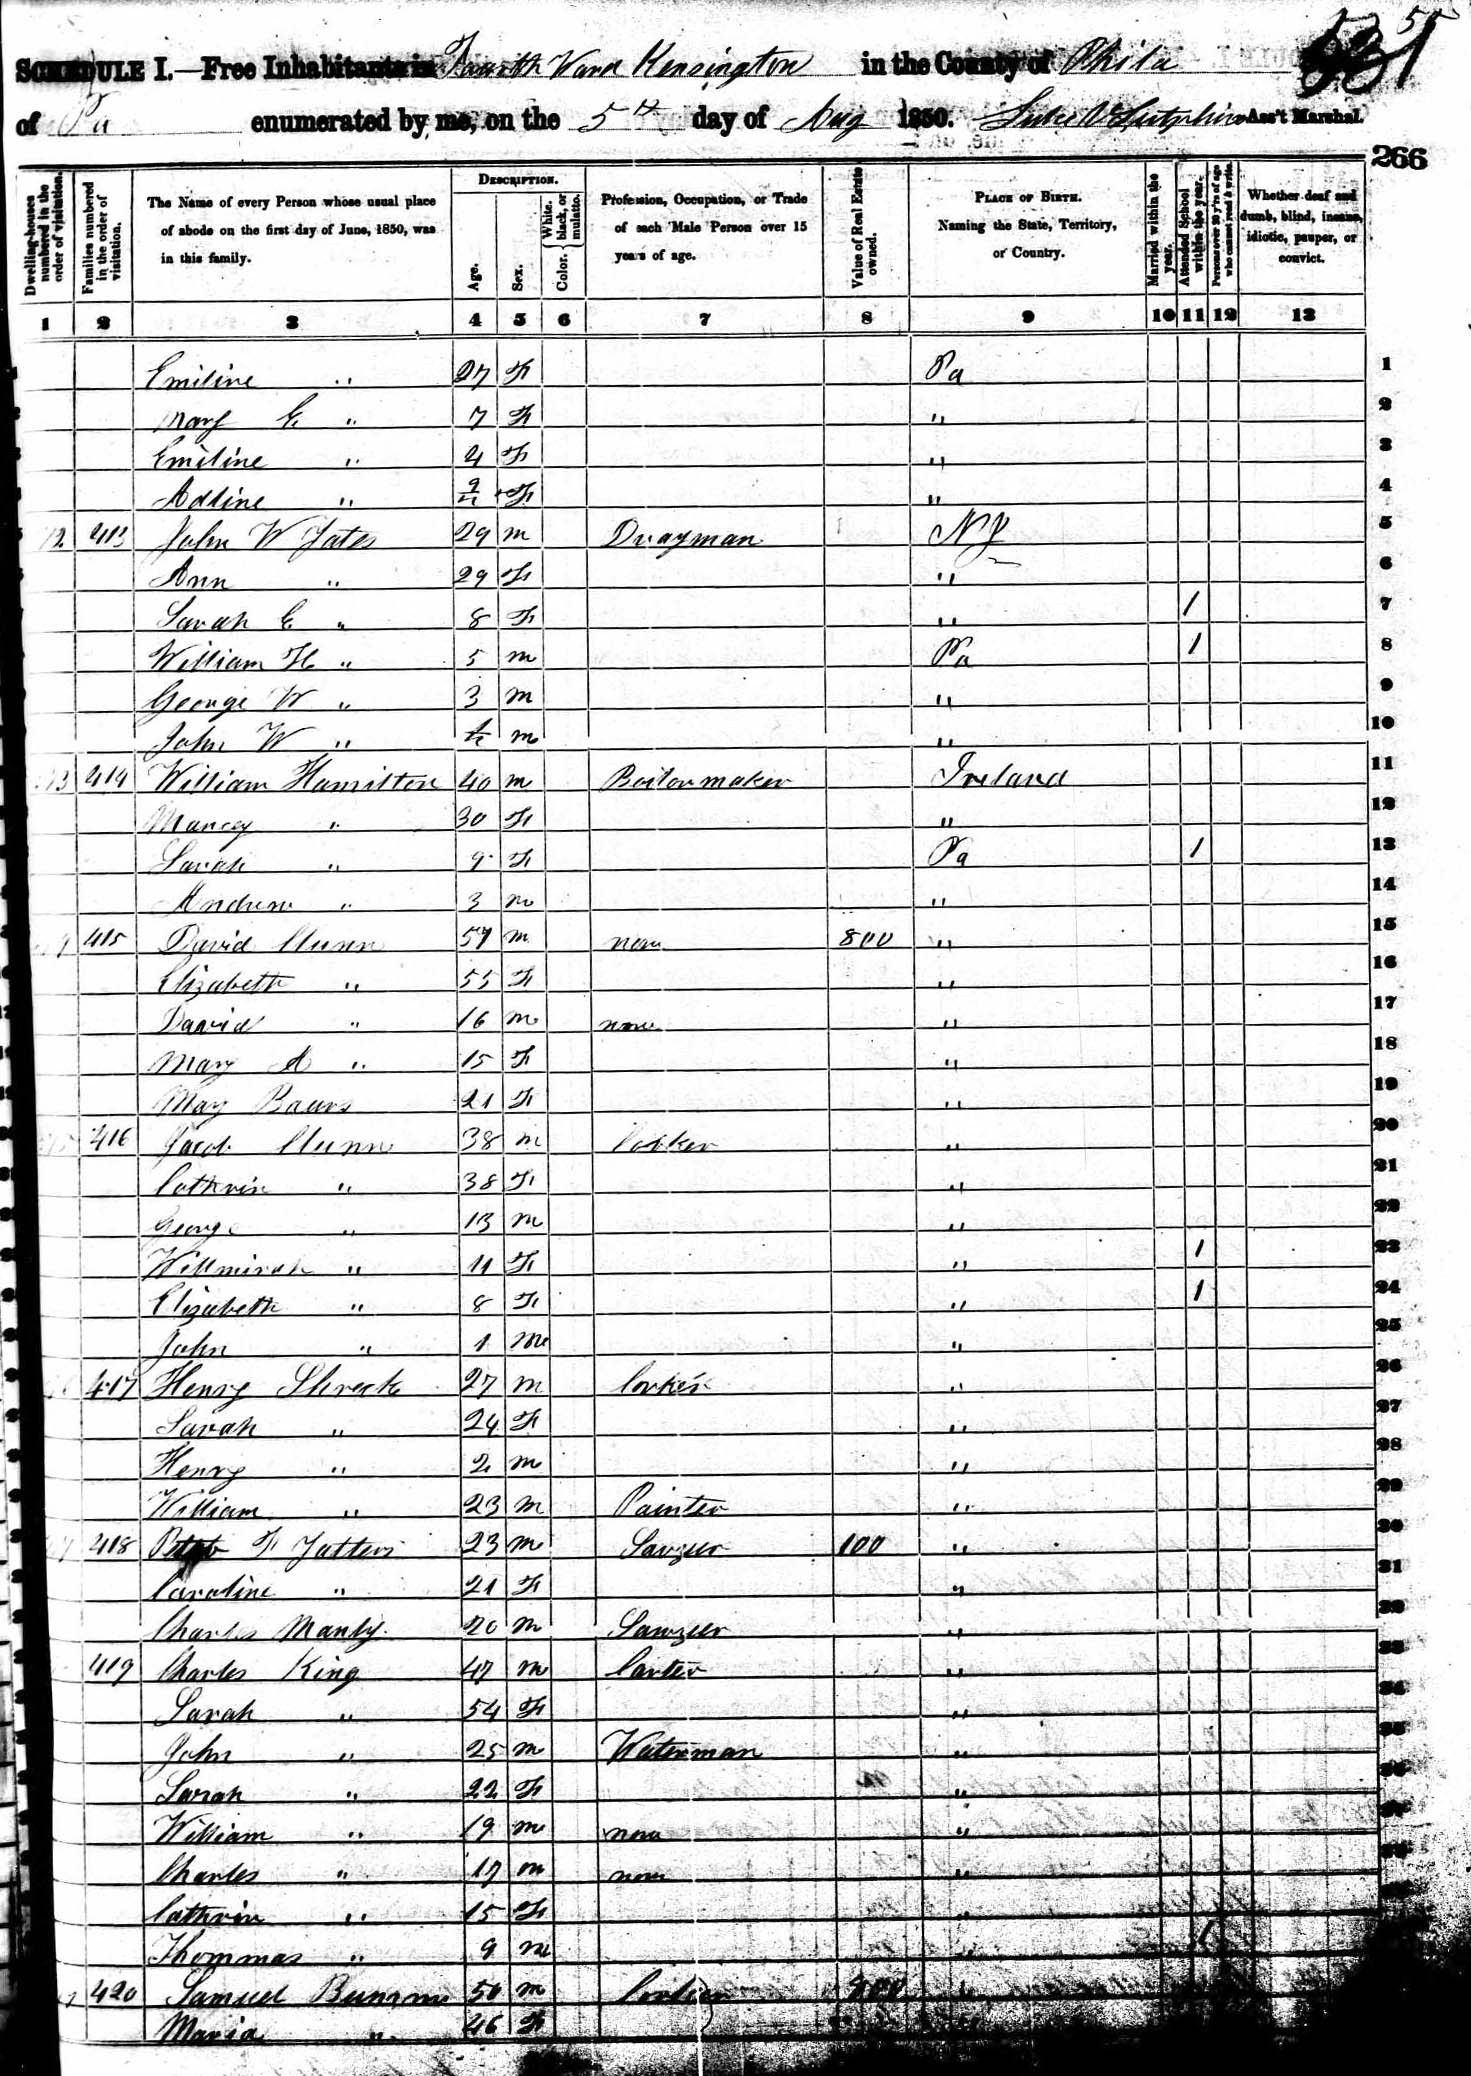 SCHEDULE I.—Free Inhabitants in Fourth Ward Kensington in the County of Phila
of Pa enumerated by me, on the 5th day of Aug 1850. Luke V Sutphin Ass't Marshal.
266
Dwelling-houses numbered in the order of visitation.
Families numbered in the order of visitation.
The Name of every Person whose usual place of abode on the first day of June, 1850, was in this family.
DESCRIPTION.
Age.
Sex.
Color. White, black, or mulatto.
Profession, Occupation, or Trade of each Male Person over 15 years of age.
Value of Real Estate owned.
PLACE OF BIRTH. Naming the State, Territory, or Country.
Married within the year.
Attended School within the year.
Persons over 20 y'rs of age who cannot read & write.
Whether deaf and dumb, blind, insane, idiotic, pauper, or convict.
1 2 3 4 5 6 7 8 9 10 11 12 13
Emiline " 27 F Pa 1
Mary E " 7 F " 2
Emiline " 4 F " 3
Adline " F " 4
413 John W Yates 29 m Drayman NJ 5
Ann " 29 F " 6
Sarah E " 8 F " 1 7
William H " 5 m Pa 1 8
George W " 3 m " 9
John W " m " 10
414 William Hamilton 40 m Boilormaker Ireland 11
Mancy " 30 F " 12
Sarah " 9 F Pa 1 13
Andrew " 3 m " 14
415 David Clunn 57 m non 800 " 15
Elizabeth " 55 F " 16
David " 16 m none " 17
Mary A " 15 F " 18
May 21 F " 19
416 Jacob Clunn 38 m " 20
Cathrin " 38 F " 21
George " 13 m " 22
Willmirah " 11 F " 1 23
Elizabeth " 8 F " 1 24
John " 1 m " 25
417 Henry Shreck 27 m " 26
Sarah " 24 F " 27
Henry " 2 m " 28
William " 23 m Painter " 29
418 F 23 m 100 " 30
Caroline " 21 F " 31
Charles Manly 20 m " 32
419 Charles King 47 m Carter " 33
Sarah " 54 F " 34
John " 25 m Waterman " 35
Sarah " 22 F "
William " 19 m non "
Charles " 17 m non "
Cathrin " 15 F "
Thommas " 9 m " 1
420 Samuel 50 m 800 "
Maria " 46 F